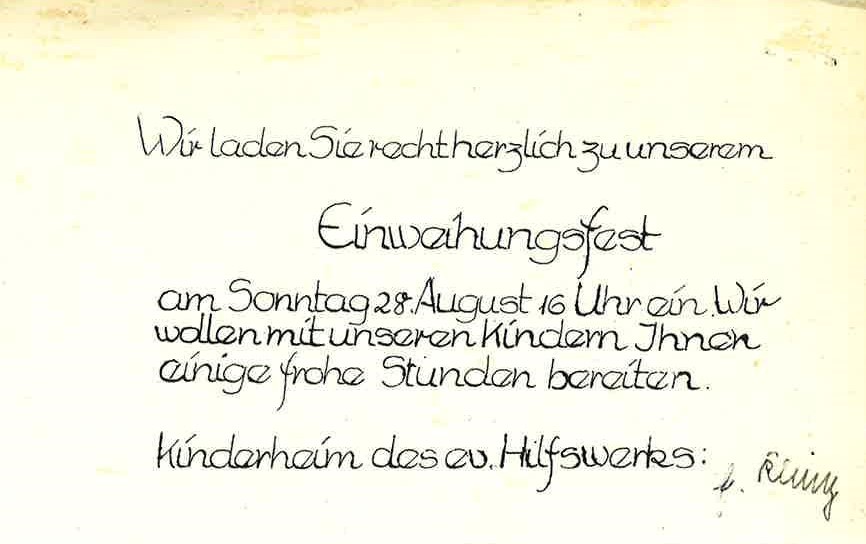 Wir laden Sie recht herzlich zu unserem
Einweihungsfest
am Sonntag 28. August 16 Uhr ein. Wir
wollen mit unseren Kindern Ihnen
einige frohe Stunden bereiten.
Kinderheim des ev. Hilfswerks: